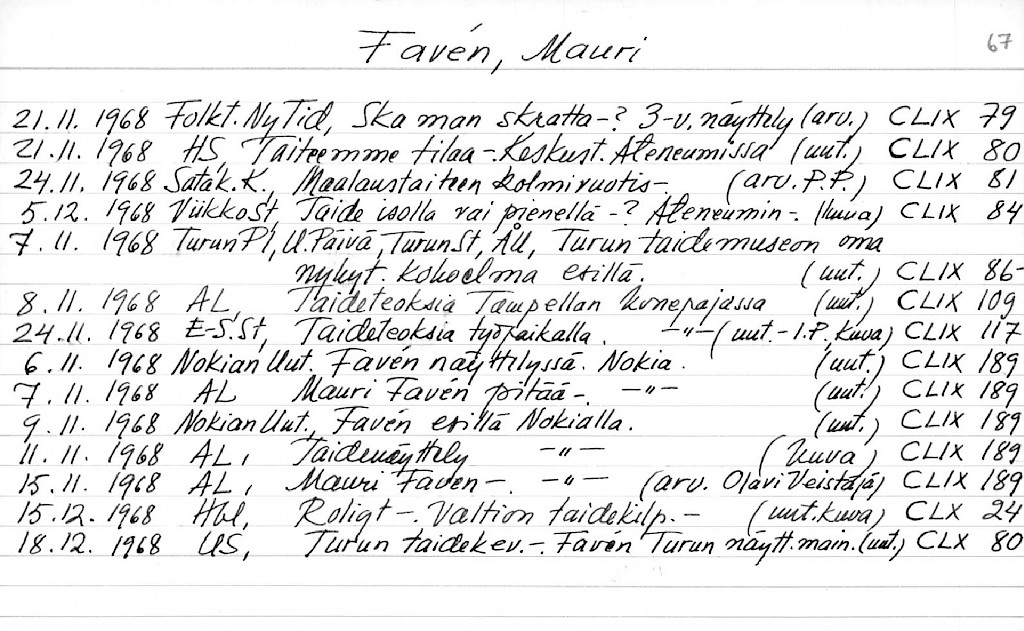 Favén, Mauri 67
21.11. 1968 Folkt. Ny Tid, Ska man skratta-? 3-v. näyttely (arv.) CLIX 79
21.11. 1968 HS, Taiteemme tilaa-. Keskust. Ateneumissa (uut.) CLIX 80
24.11. 1968 Satak. K., Maalaustaiteen kolmivuotis-. (arv. P.P.) CLIX 81
5.12. 1968 ViikkoSt, Taide isolla vai pienellä-? Ateneumin-. (kuva) CLIX 84
7.11. 1968 TurunPl, U.Päivä, TurunSt, ÅU, Turun taidemuseon oma
nykyt. kokoelma esillä. (uut.) CLIX 86-
8.11. 1968 AL, Taideteoksia Tampellan konepajassa (uut.) CLIX 109
24.11. 1968 E-S.St, Taideteoksia työpaikalla. -"- (uut.- I.P. kuva) CLIX 117
6.11. 1968 Nokian Uut. Favén näyttelyssä. Nokia. (uut.) CLIX 189
7.11. 1968 AL Mauri Favén pitää-. -"- (uut.) CLIX 189
9.11. 1968 Nokian Uut., Favén esillä Nokialla. (uut.) CLIX 189
11.11. 1968 AL, Taidenäyttely -"- (kuva) CLIX 189
15.11. 1968 AL, Mauri Favén-. -"- (arv. Olavi Veistäjä) CLIX 189
15.12. 1968 Hbl, Roligt-. Valtion taidekilp.- (uut. kuva) CLX 24
18.12. 1968 US, Turun taidekev.-. Favén Turun näytt. main. (uut.) CLX 80